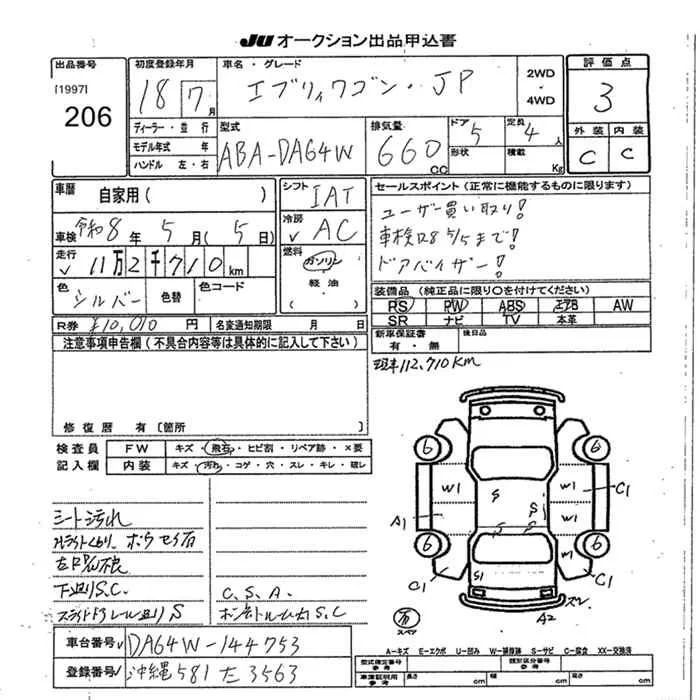 JU オークション出品申込書
出品番号
[1997]
206
初度登録年月
18 7月
車名・グレード
エブリィワゴン・JP
2WD
・
4WD
評価点
3
外装 内装
C C
ディーラー・並行
モデル年式 年
ハンドル 左・右
型式
ABA-DA64W
排気量
660 CC
ドア 5
形状
定員 4人
積載 Kg
車歴 自家用( )
シフト IAT
セールスポイント(正常に機能するものに限ります)
ユーザー買い取り!
車検R8 5/5まで!
ドアバイザー!
車検 令和8年 5月( 5日)
冷房 AC
走行 11万2千710km
燃料 ガソリン
・
軽油
色 シルバー 色替 色コード
装備品(純正品に限り○を付けてください)
PS PW ABS エアB AW
SR ナビ TV 本革
R券 ¥10,010 円 名変通知期限 月 日
新車保証書 後日品
有・無
注意事項申告欄(不具合内容等は具体的に記入して下さい)
現車112,710KM
修復歴 有〔箇所 〕
検査員
記入欄
FW キズ・飛石・ヒビ割・リペア跡・×要
内装 キズ・汚れ・コゲ・穴・スレ・キレ・破レ
6 6
W1 S W1 C1
A1 S S W1
6 6
C1 S1 C1
ズレ
A2
スペア
シート汚れ
下廻りS.C
C.S.A.
スライドドアレール廻りS
車台番号 DA64W-144753
登録番号 沖縄581 え3563
A-キズ E-エクボ U-凹み W-補修跡 S-サビ C-腐食 XX-交換済
型式指定番号
参考
類別区分番号
参考
車庫証明用
参考
長さ cm 幅 cm 高さ cm